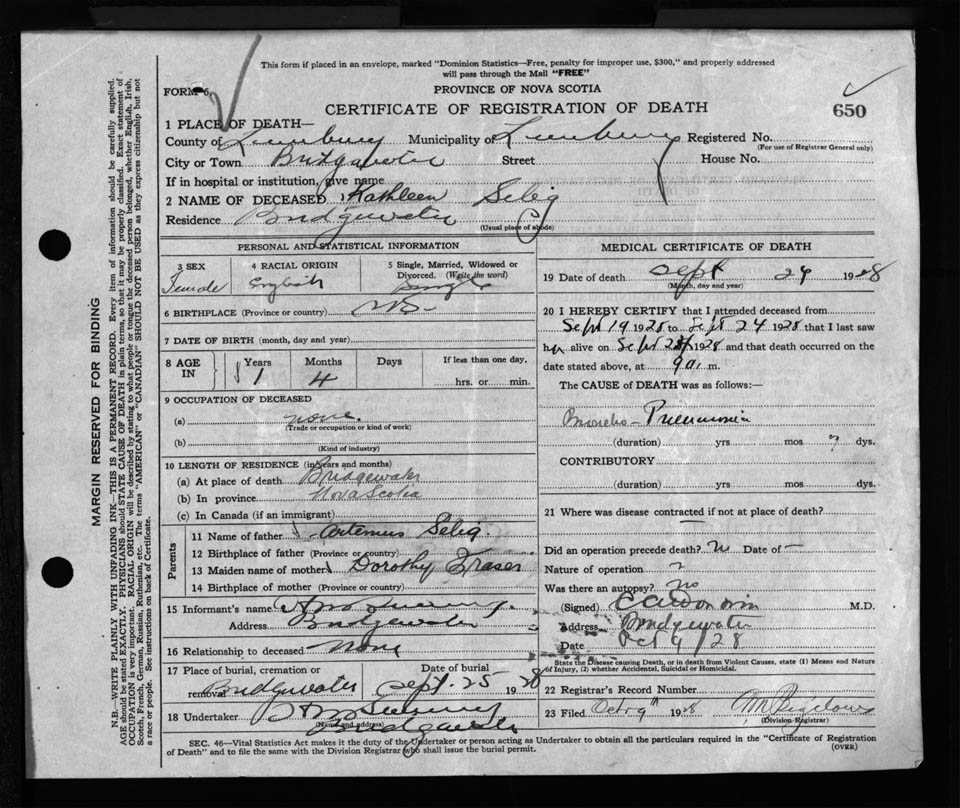 This form if placed in an envelope, marked "Dominion Statistics—Free, penalty for improper use, $300," and properly addressed
will pass through the Mail "FREE"
FORM 6.
PROVINCE OF NOVA SCOTIA
CERTIFICATE OF REGISTRATION OF DEATH
650
1 PLACE OF DEATH—
County of Lunenburg Municipality of Lunenburg Registered No.
(For use of Registrar General only)
City or Town Bridgewater Street House No.
If in hospital or institution, give name
2 NAME OF DECEASED Kathleen Selig
Residence Bridgewater
(Usual place of abode)
PERSONAL AND STATISTICAL INFORMATION
3 SEX 4 RACIAL ORIGIN 5 Single, Married, Widowed or
Divorced. (Write the word)
Female English Single
6 BIRTHPLACE (Province or country) N.S.
7 DATE OF BIRTH (month, day and year)
8 AGE IN Years Months Days If less than one day,
1 4 hrs. or min.
9 OCCUPATION OF DECEASED
(a) none.
(Trade or occupation or kind of work)
(b)
(Kind of industry)
10 LENGTH OF RESIDENCE (in years and months)
(a) At place of death Bridgewater
(b) In province Nova Scotia
(c) In Canada (if an immigrant)
Parents
11 Name of father Artemus Selig
12 Birthplace of father (Province or country)
13 Maiden name of mother Dorothy Fraser
14 Birthplace of mother (Province or country)
15 Informant's name
Address Bridgewater
16 Relationship to deceased None
17 Place of burial, cremation or Date of burial
removal Bridgewater Sept. 25 1928
18 Undertaker
(Name and address)
Bridgewater
MEDICAL CERTIFICATE OF DEATH
19 Date of death Sept 24 1928
(Month, day and year)
20 I HEREBY CERTIFY that I attended deceased from
Sept 19 1928 to Sept 24 1928 that I last saw
her alive on Sept 1928 and that death occurred on the
date stated above, at 9 a. m.
The CAUSE of DEATH was as follows:—
Broncho-Pneumonia
(duration) yrs mos dys.
CONTRIBUTORY
(duration) yrs mos dys.
21 Where was disease contracted if not at place of death?
Did an operation precede death? no Date of —
Nature of operation
Was there an autopsy? no
(Signed) M.D.
Address Bridgewater
Date Oct 9/28
State the Disease causing Death, or in death from Violent Causes, state (1) Means and Nature
of Injury, (2) whether Accidental, Suicidal or Homicidal.
22 Registrar's Record Number
23 Filed Oct 9th 1928
(Division Registrar)
SEC. 46—Vital Statistics Act makes it the duty of the Undertaker or person acting as Undertaker to obtain all the particulars required in the "Certificate of Registration
of Death" and to file the same with the Division Registrar who shall issue the burial permit.
(OVER)
MARGIN RESERVED FOR BINDING
N.B.—WRITE PLAINLY WITH UNFADING INK—THIS IS A PERMANENT RECORD. Every item of information should be carefully supplied.
AGE should be stated EXACTLY. PHYSICIANS should STATE CAUSE OF DEATH in plain terms, so that it may be properly classified. Exact statement of
OCCUPATION is very important. RACIAL ORIGIN will be described by stating to what people or tongue the deceased person belonged, whether English, Irish,
Scotch, French, German, Russian, Ruthenian, etc. The terms "AMERICAN" or "CANADIAN" SHOULD NOT BE USED as they express citizenship but not
a race or people. See instructions on back of Certificate.